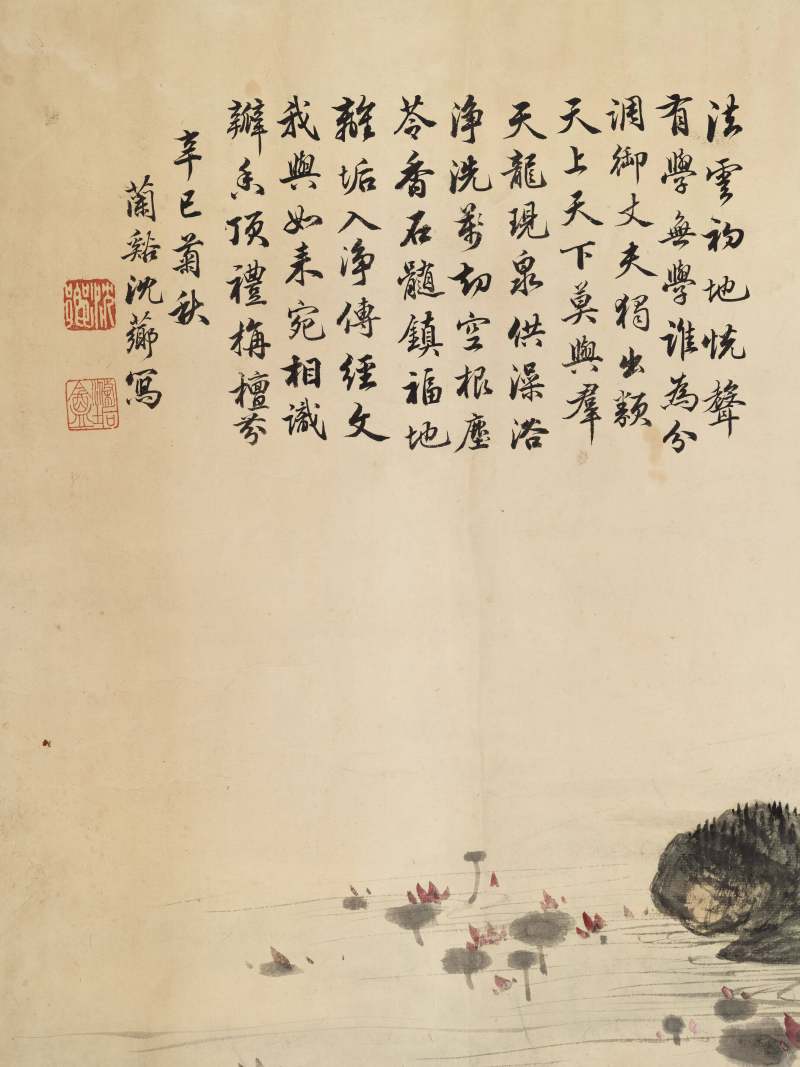 法雲初地恍聲
有學無學誰為分
調御丈夫獨出類
天上天下莫與羣
天龍現泉供澡浴
淨洗萬劫空根塵
苓香石髓鎮福地
離垢入淨傳經文
我與如来宛相識
瓣香頂禮栴檀芬
辛巳菊秋
蘭谿沈薌寫